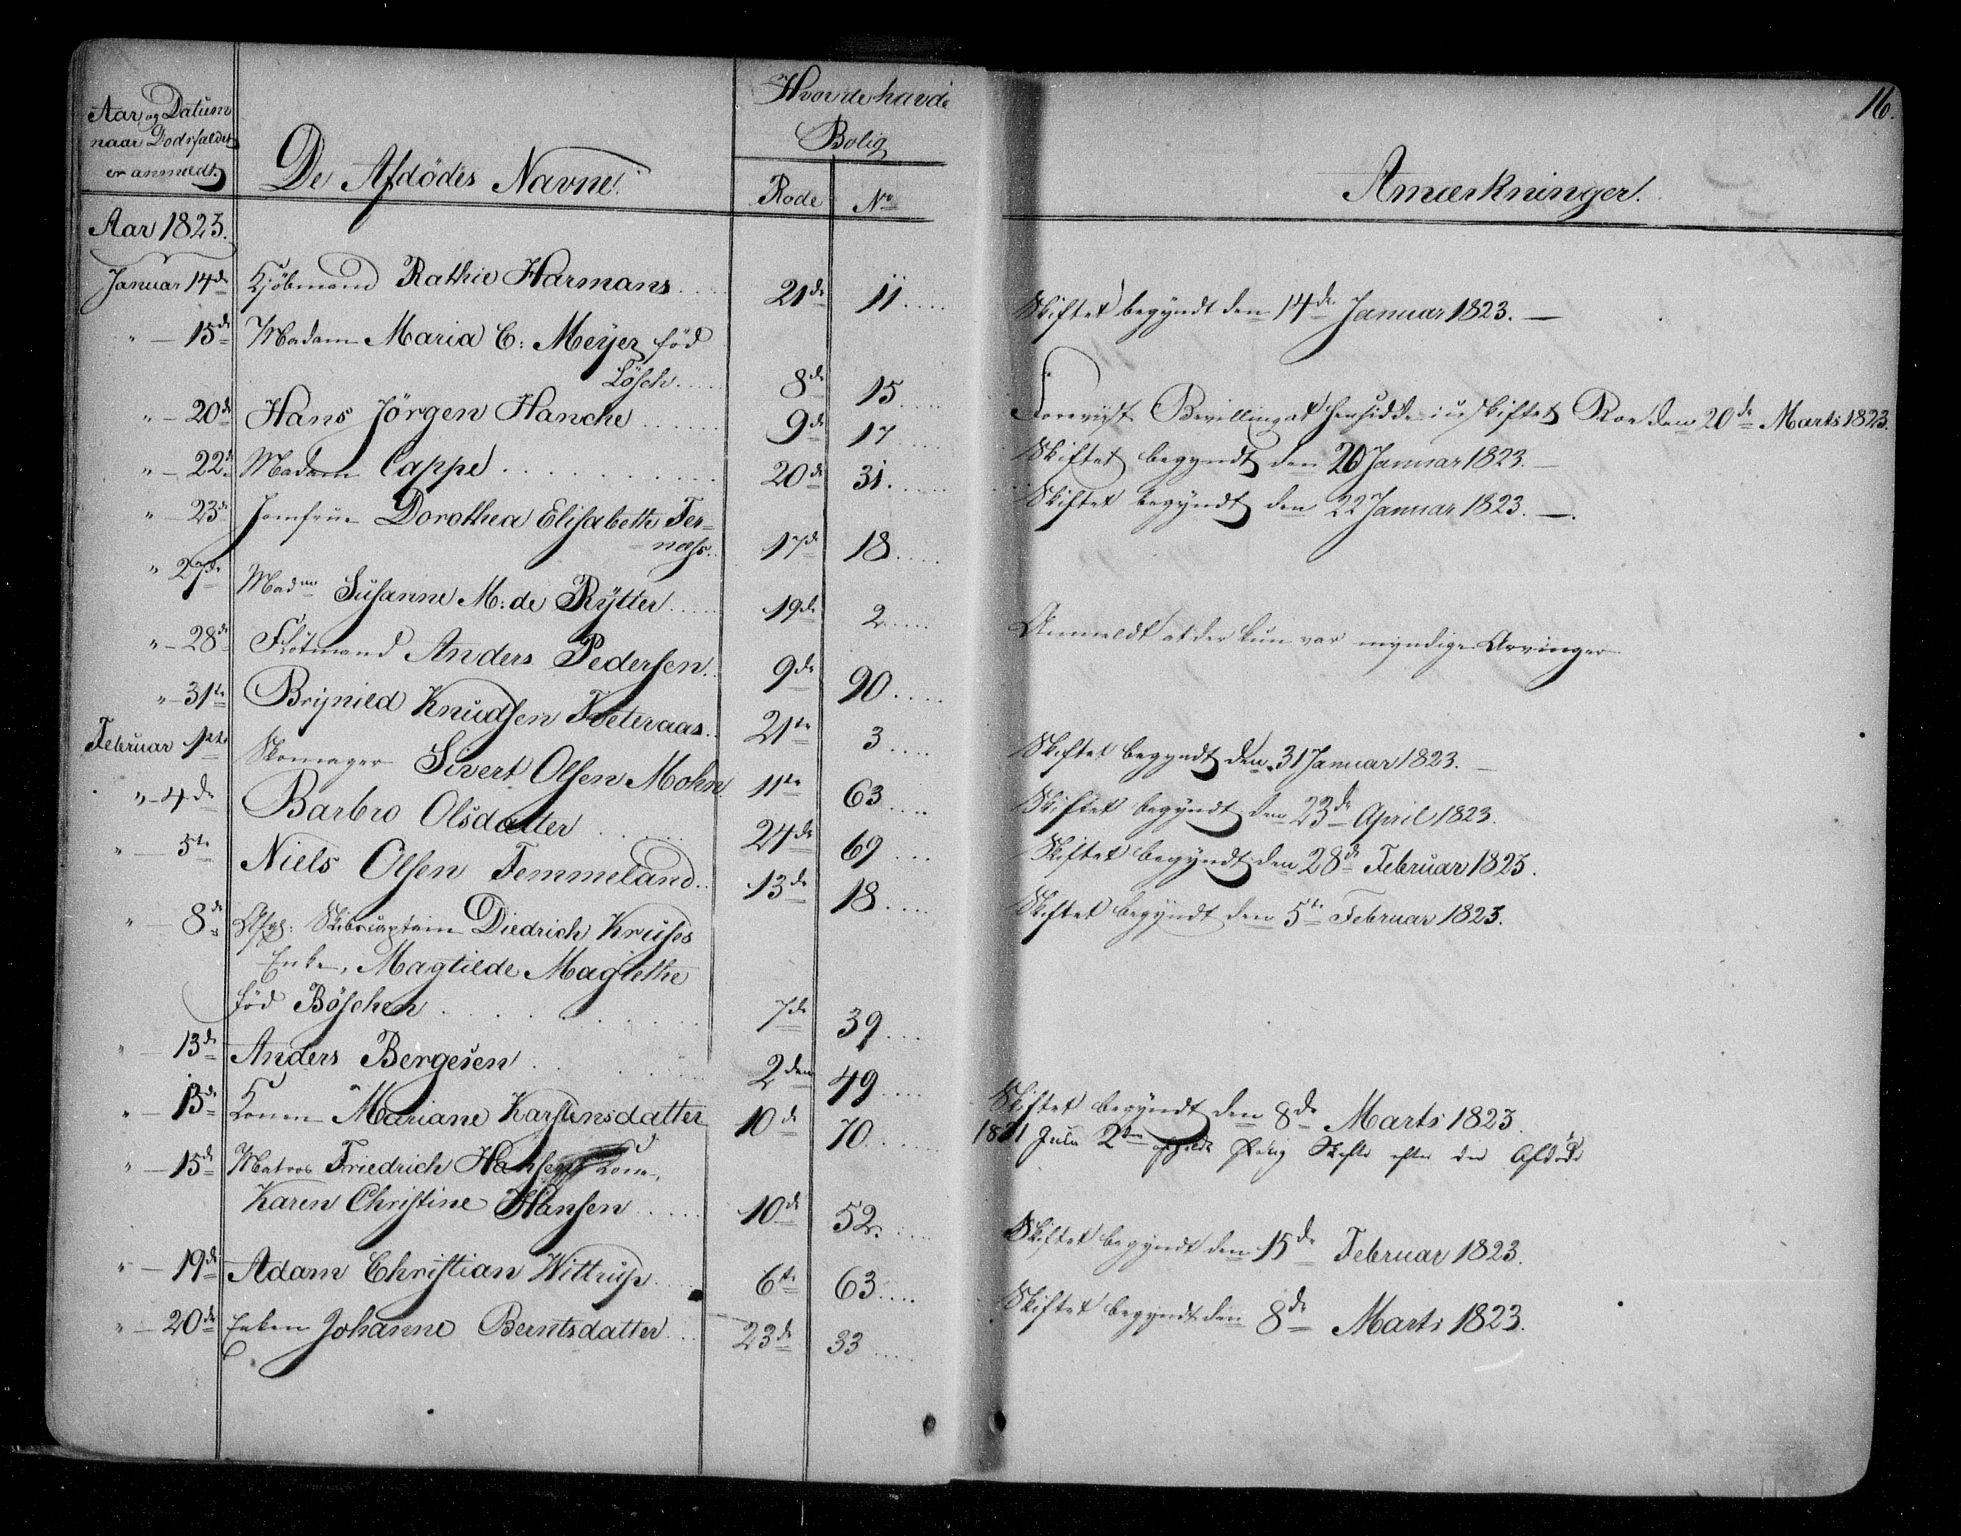 16.
Aar og Datum
naar Dødsfaldet
er anmeldt.
De Afdødes Navne.
Hvor de havde
Bolig
Rode No
Anmærkninger.
Aar 1823.
Januar 14de Kjøbmand Rathie Harmans 21de 11 Skiftet begyndt den 14de Januar 1823.
" 15de Madam Maria C: Meyer, fød
Lösch 8de 15
" 20de Hans Jörgen Hancke 9de 17 Foreviist Bevilling at hensidde i uskiftet Boe den 20de Marts 1823.
" 22de Madam Cappe 20de 31 Skiftet begyndt den 20 Januar 1823.
" 23de Jomfrue Dorothea Elisabeth Fer- Skiftet begyndt den 22 Januar 1823.
næss 17de 18
" 27de Madme Susanne M: de Rÿtter 19de 2
" 28de Flötmand Anders Pedersen 9de 90 Anmeldt at der kun var myndige Arvinger
" 31te Brynild Knudsen Tveteraas 21te 3
Februar 1ste Skomager Sivert Olsen Mohn 11te 63 Skiftet begyndt den 31 Januar 1823.
" 4de Barbro Olsdatter 24de 69 Skiftet begyndt den 23de April 1823.
" 5te Niels Olsen Femmeland 13de 18 Skiftet begyndt den 28de Februar 1823.
" 8de Afg: Skibscaptain Diedrich Kruses Skiftet begyndt den 5te Februar 1823.
Enke, Magtilde Magrethe
fød Böschen 7de 39
" 13de Anders Bergesen 2den 49
" 13de Konen Mariane Karstensdatter 10de 70 Skiftet begyndt den 8de Marts 1823.
1831 Juli 2den afholdt Skifte efter den Afdøde
" 15de Matros Friedrich Hansens Kone,
Karen Christine Hansen 10de 52
" 19de Adam Christian Wittrup 6te 63 Skiftet begyndt den 15de Februar 1823.
" 20de Enken Johanne Berntsdatter 23de 33 Skiftet begyndt den 8de Marts 1823.